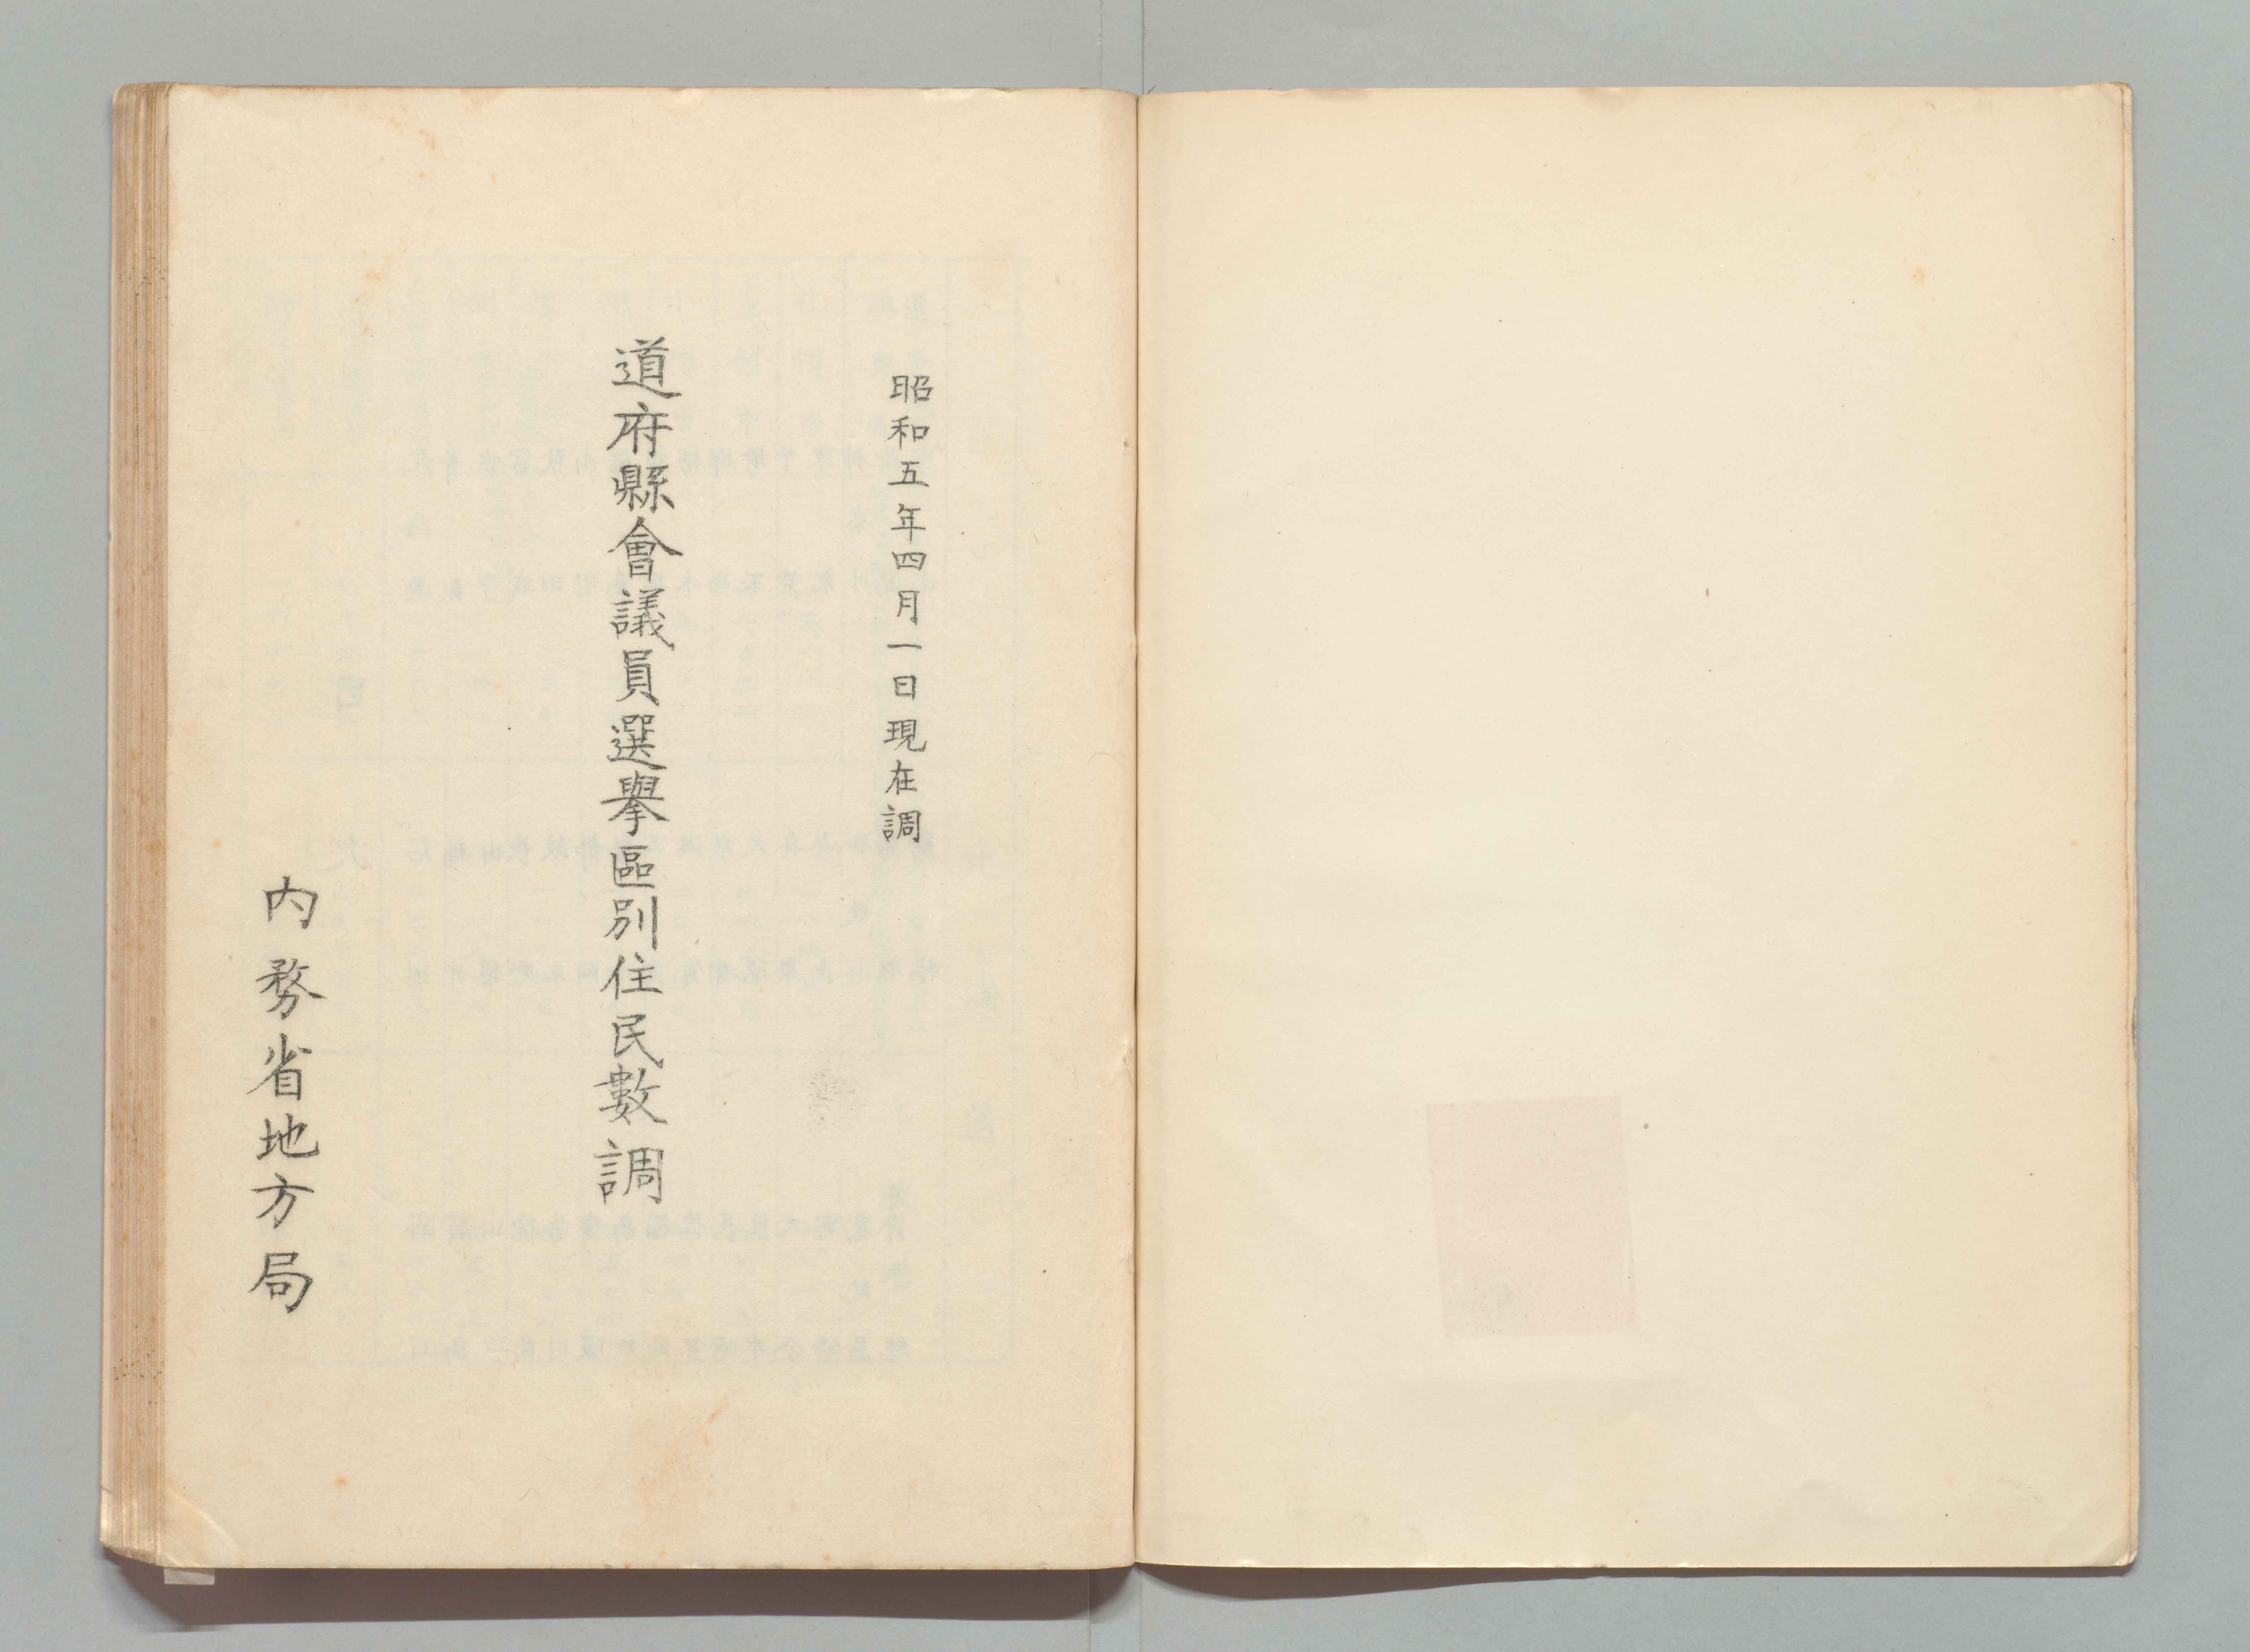 昭和五年四月一日現在調
道府縣會議員選擧區別住民數調
内務省地方局